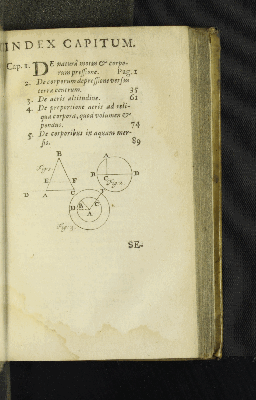 INDEX CAPITUM.
Cap. 1. DE naturâ motus & corpo-
rum pressione. Pag. 1
2. De corporum depressione versus
terræ centrum. 35
3. De aeris altitudine. 61
4. De proportione aeris ad reli-
qua corpora, quoad volumen &
pondus. 74
5. De corporibus in aquam mer-
sis. 89
B
A
Fig. 1.
B
D
E
F
C
Fig. 2.
D
A
C
C
D
B
A
Fig. 3.
SE-